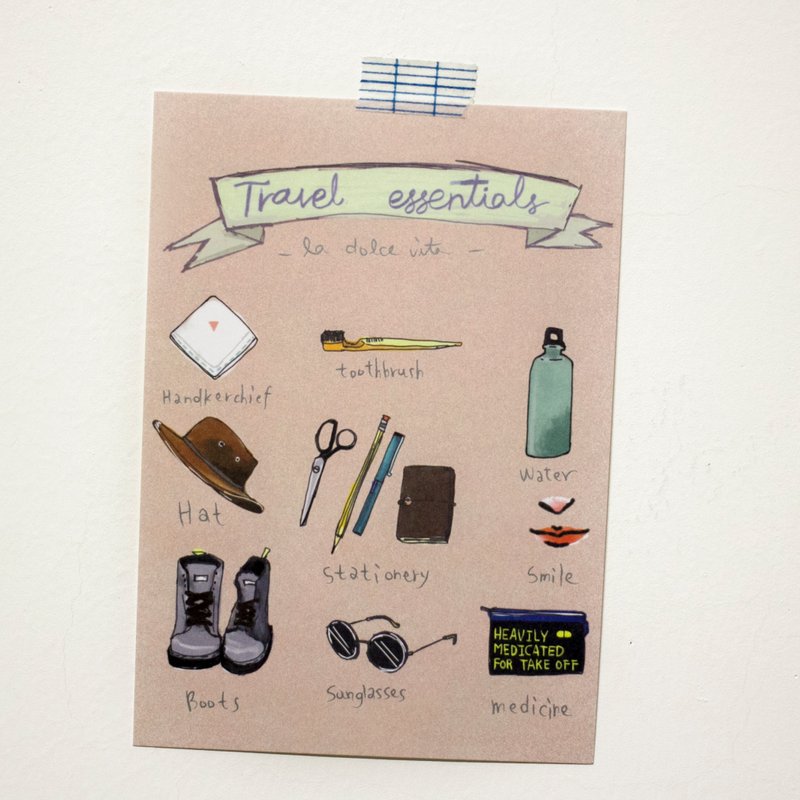 Travel essentials
- la dolce vita -
Handkerchief
toothbrush
Water
Hat
Stationery
Smile
Boots
Sunglasses
HEAVILY
MEDICATED
FOR TAKE OFF
medicine